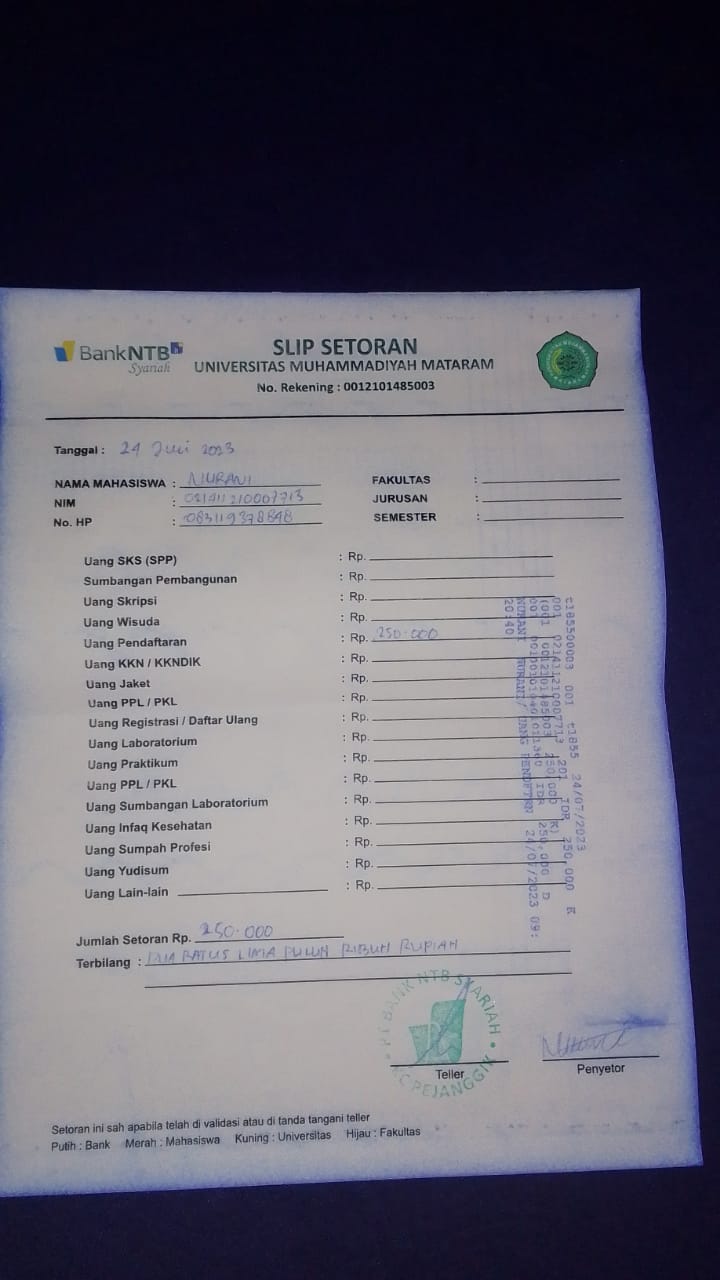 BankNTB
Syariah
SLIP SETORAN
UNIVERSITAS MUHAMMADIYAH MATARAM
No. Rekening : 0012101485003
Tanggal : 24 Juli 2023
NAMA MAHASISWA : NURANI
NIM : 021411210007713
No. HP : 083119378848
FAKULTAS :
JURUSAN :
SEMESTER :
Uang SKS (SPP) : Rp.
Sumbangan Pembangunan : Rp.
Uang Skripsi : Rp.
Uang Wisuda : Rp.
Uang Pendaftaran : Rp. 250.000
Uang KKN / KKNDIK : Rp.
Uang Jaket : Rp.
Uang PPL / PKL : Rp.
Uang Registrasi / Daftar Ulang : Rp.
Uang Laboratorium : Rp.
Uang Praktikum : Rp.
Uang PPL / PKL : Rp.
Uang Sumbangan Laboratorium : Rp.
Uang Infaq Kesehatan : Rp.
Uang Sumpah Profesi : Rp.
Uang Yudisum : Rp.
Uang Lain-lain : Rp.
t185500003 001 t1855 24/07/2023
001 021411210007713 201 IDR 250,000 K
(001 0012101485003 250,000 K)
IDR 250,000 D
NURANI NURANI/ UANG 24/07/2023 09:
20:40
Jumlah Setoran Rp. 250.000
Terbilang : DUA RATUS LIMA PULUH RIBUH RUPIAH
PT BANK NTB SYARIAH
KC PEJANGGIK
Teller
Penyetor
Setoran ini sah apabila telah di validasi atau di tanda tangani teller
Putih : Bank Merah : Mahasiswa Kuning : Universitas Hijau : Fakultas